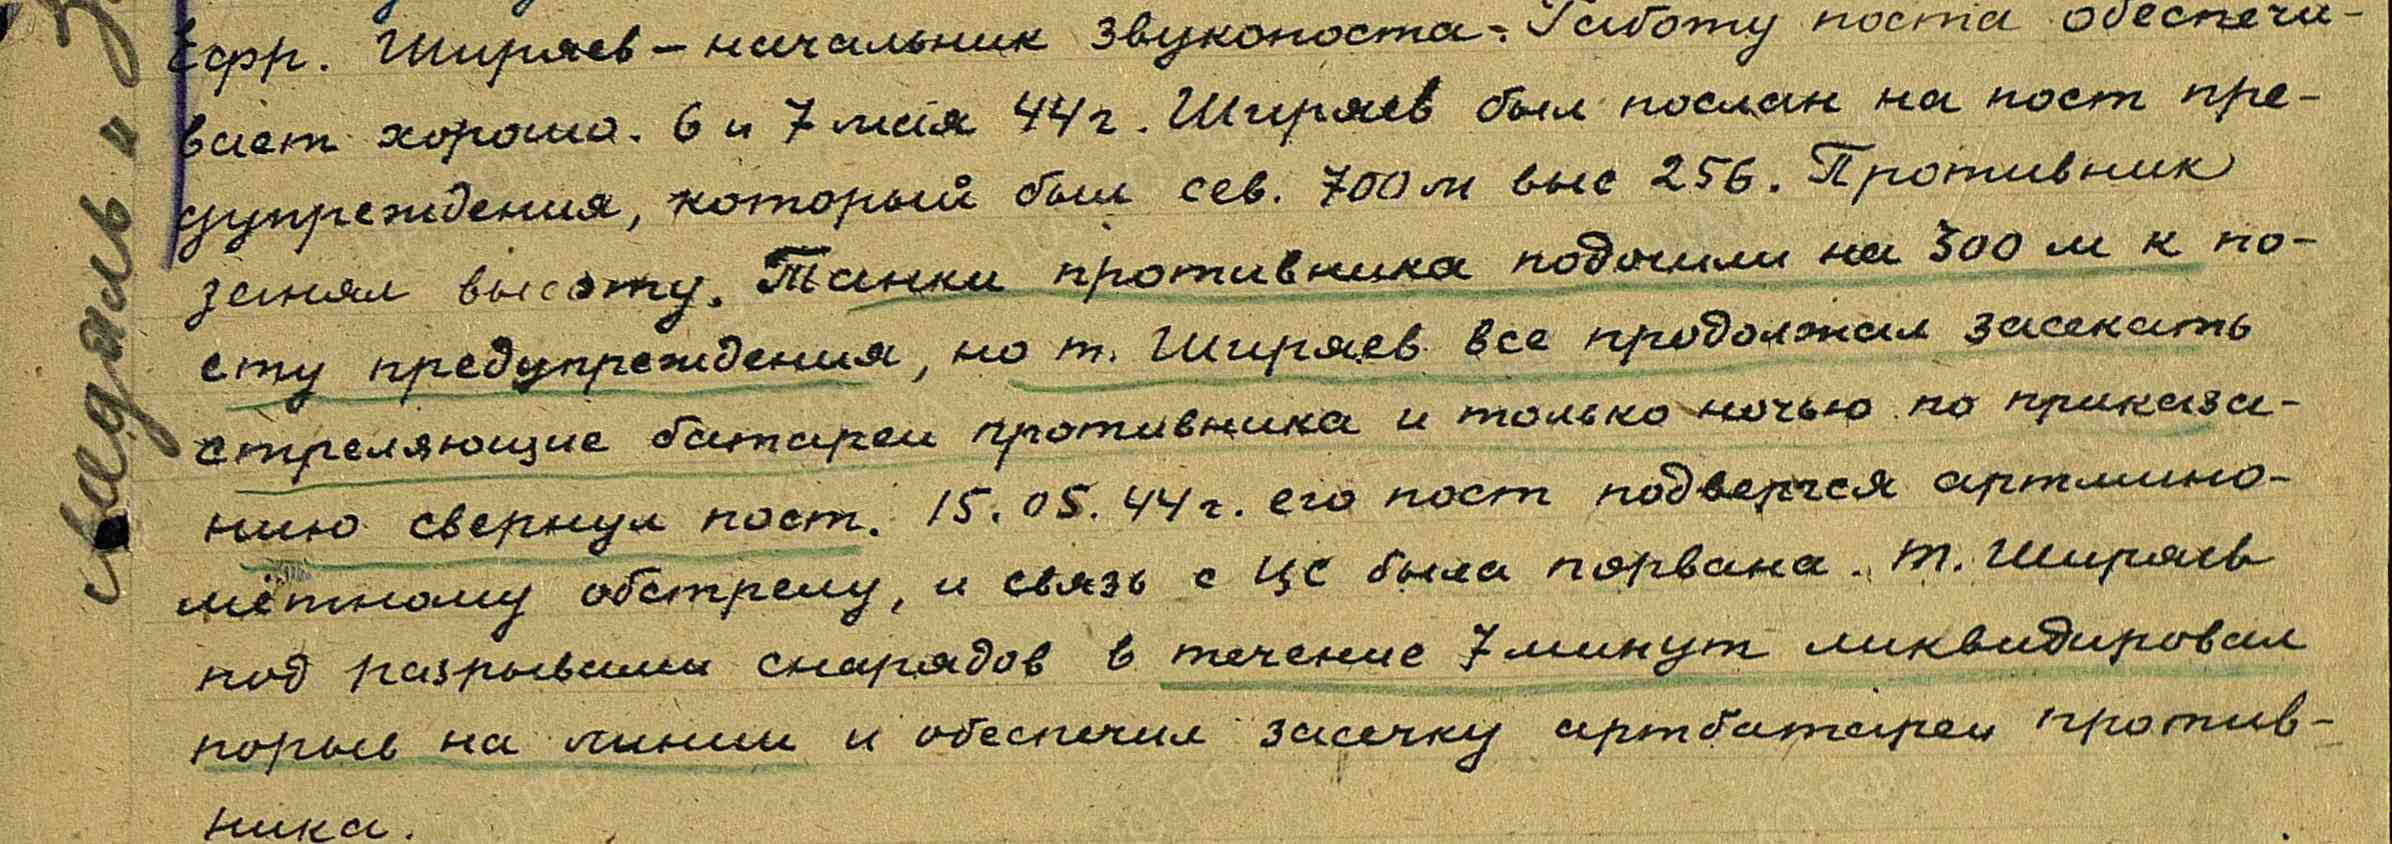 Ефр. Ширяев – начальник звукопоста. Работу поста обеспечи-
вает хорошо. 6 и 7 мая 44 г. Ширяев был послан на пост пре-
дупреждения, который был сев. 700 м выс 256. Противник
занял высоту. Танки противника подошли на 300 м к по-
сту предупреждения, но т. Ширяев все продолжал засекать
стреляющие батареи противника и только ночью по приказа-
нию свернул пост. 15.05.44 г. его пост подвергся артмино-
мётному обстрелу, и связь с ЦС была порвана. Т. Ширяев
под разрывами снарядов в течение 7 минут ликвидировал
порыв на линии и обеспечил засечку артбатареи против-
ника.